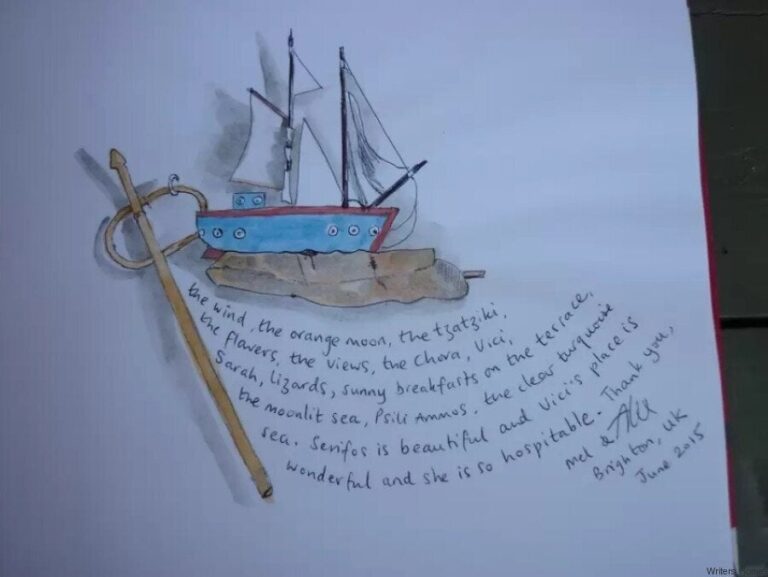 the wind, the orange moon, the tzatziki,
the flavers, the views, the Chora, Vici,
Sarah, lizards, sunny breakfasts on the terrace,
the moonlit sea, Psili Ammos, the clear turquoise
sea. Serifos is beautiful and Vici's place is
wonderful and she is so hospitable. Thank you,
Mel &
Brighton, UK
June 2015
Writers